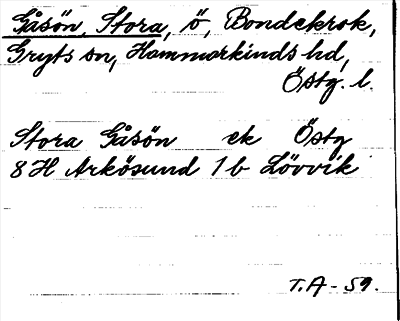 Gåsön, Stora, ö, Bondekrok,
Gryts sn, Hammarkinds hd,
Östg. l.
Stora Gåsön ek Östg
8 H Arkösund 1 b Lövvik
T.A - 59.